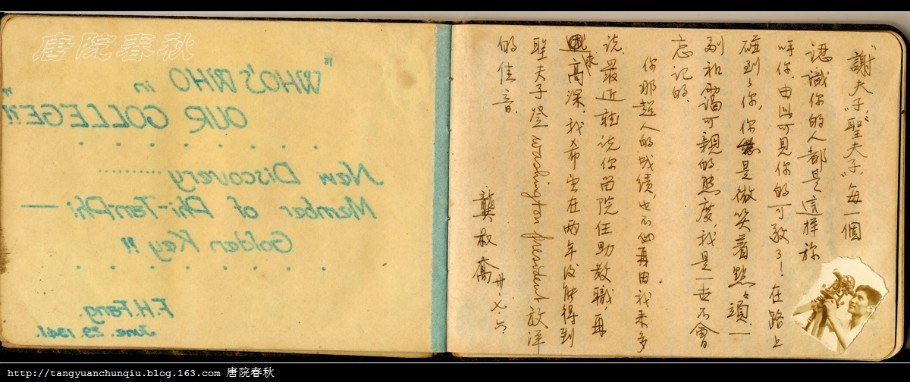 唐院春秋
"WHO'S WHO in
OUR COLLEGE!!"
New Discovery
Member of Phi-Tau-Phi —
Golden Key!!
F.H. Fang.
June. 29. 1941.
"謝夫子""聖夫子"每一個
認識你的人都是這样称
呼你.由此可見你的可敬了!在路上
碰到了你,你總是微笑着點々頭.一
副和藹可親的態度,我是一世不會
忘记的.
你那超人的成績也不必再由我来多
说.最近就说你留院任助教職.再
求高深.我希望在两年後能得到
聖夫子登 Washington president 放洋
的佳音.
龔叔
http://tangyuanchunqiu.blog.163.com 唐院春秋